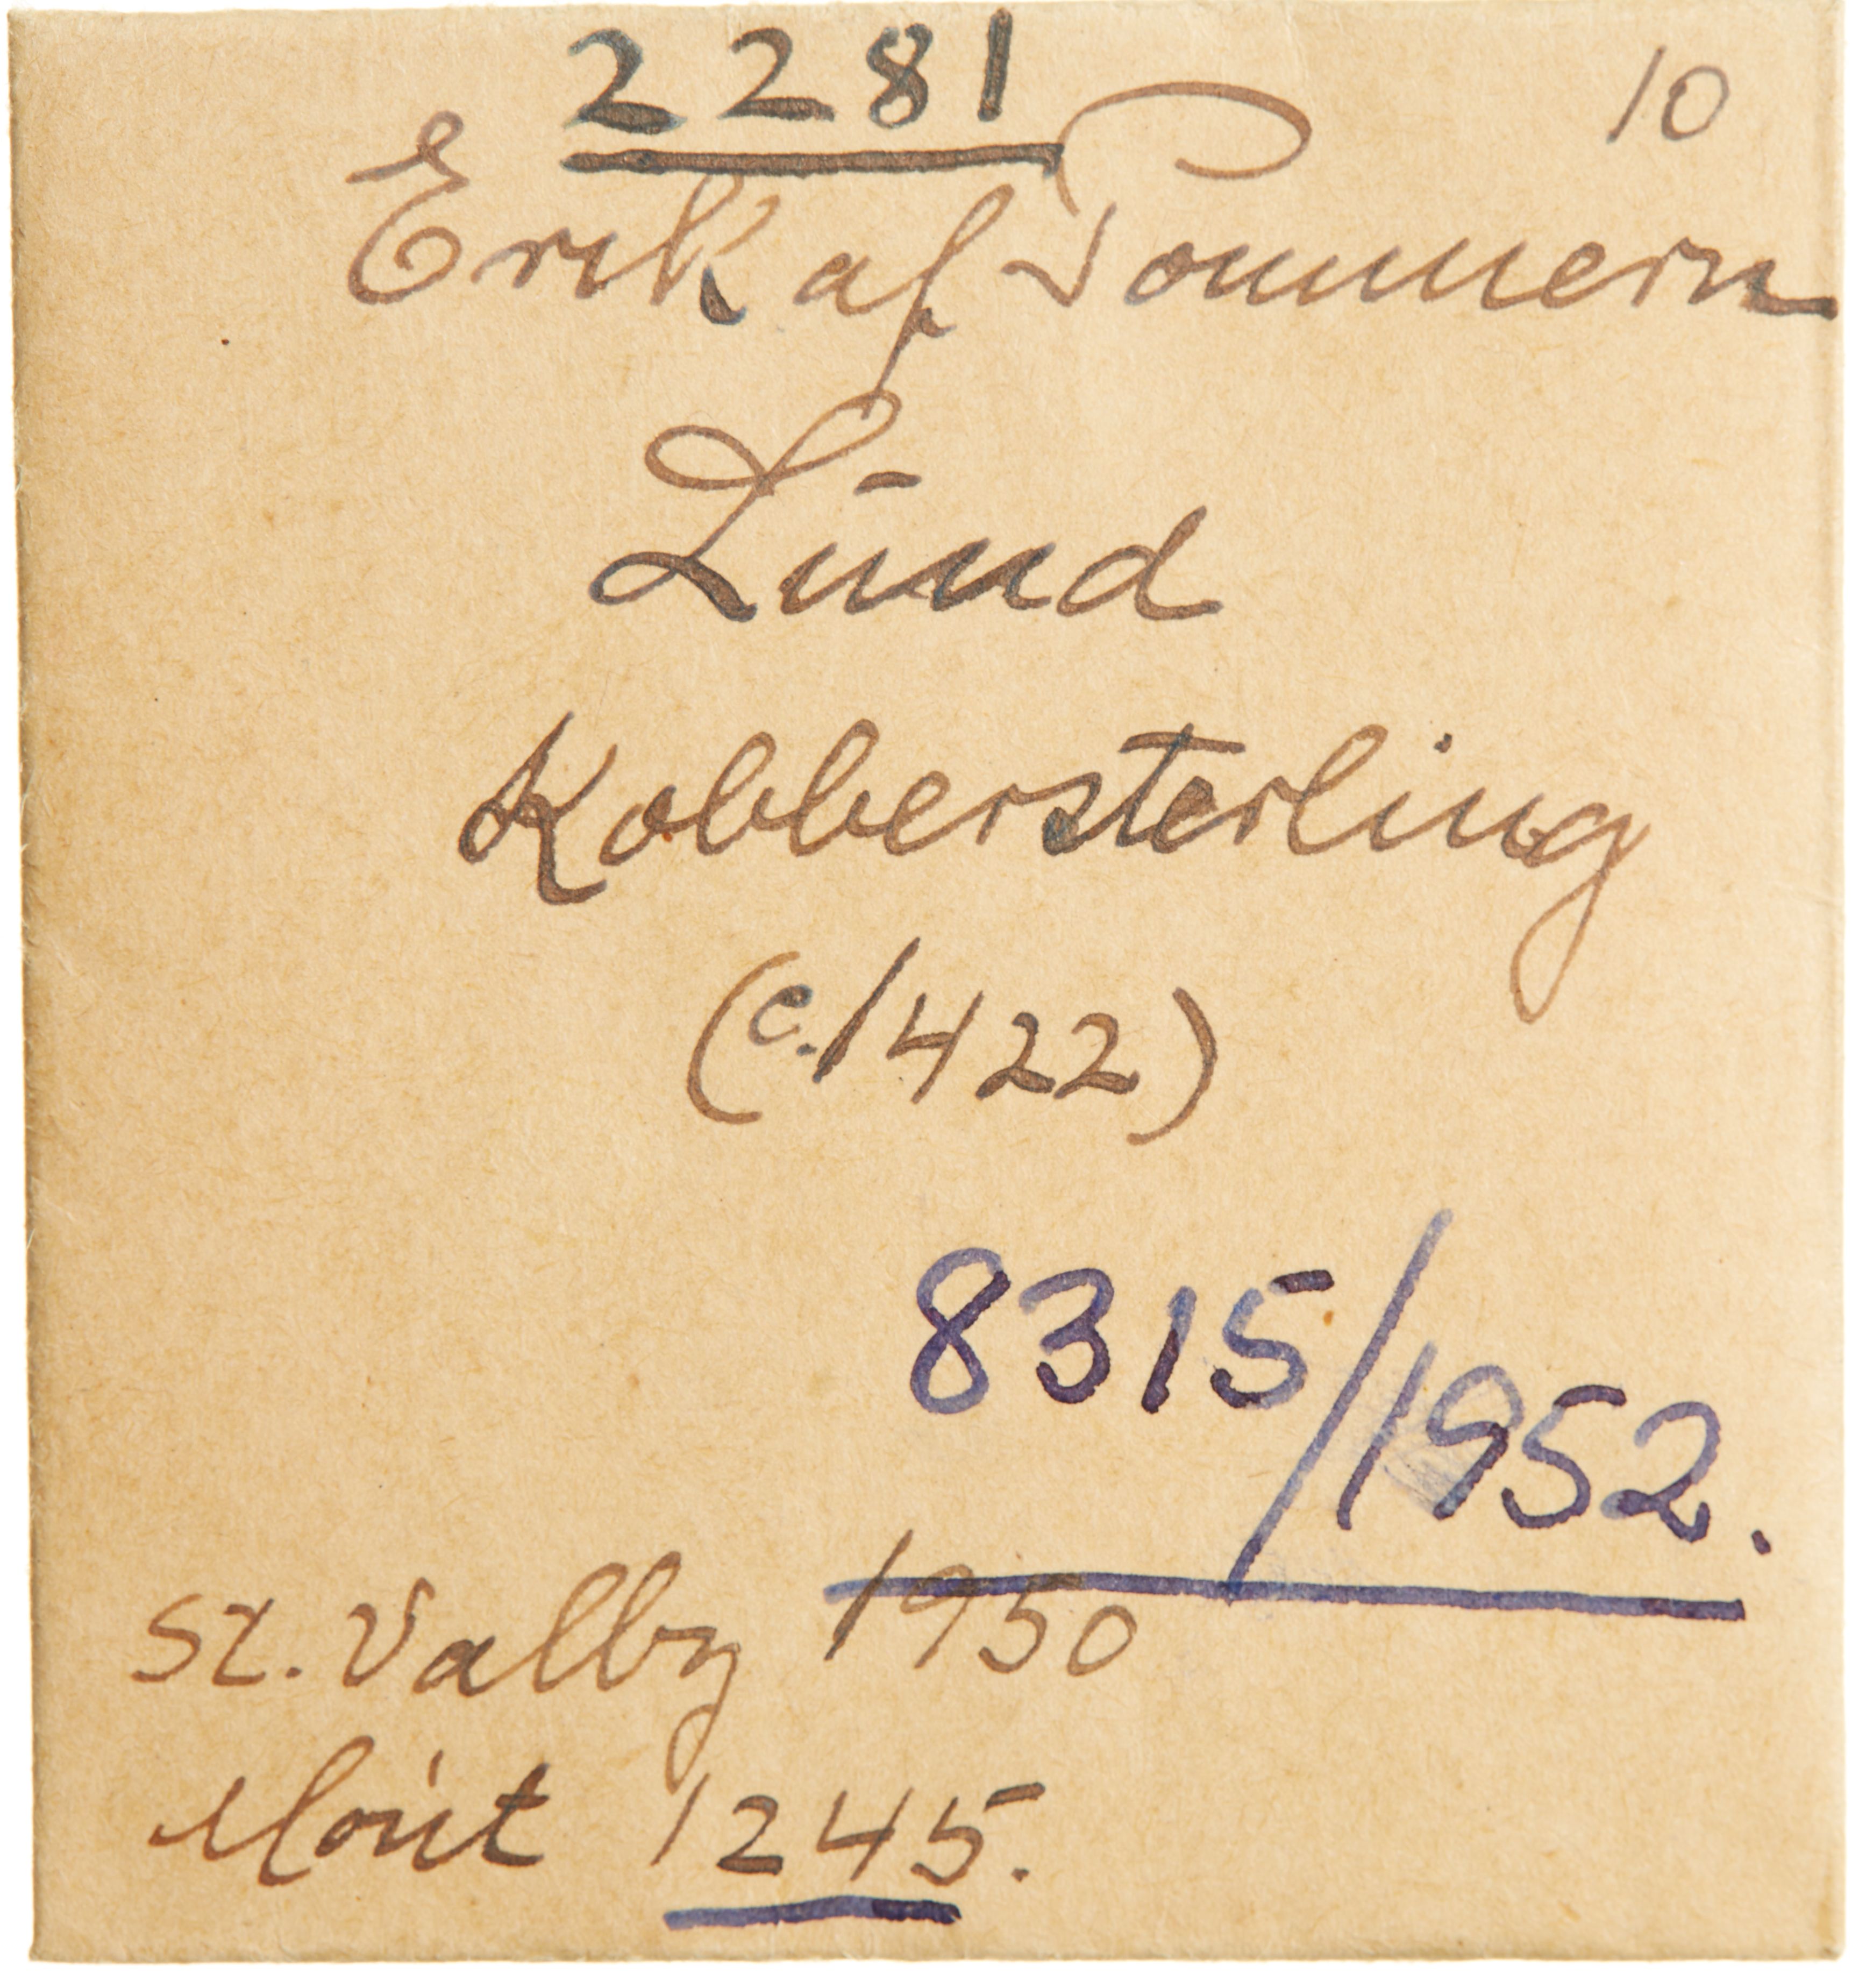 2281
10
Erik af Pommern
Lund
Kobbersterling
(c. 1422)
8315/1952.
St. Valby 1950
Mønt 1245.